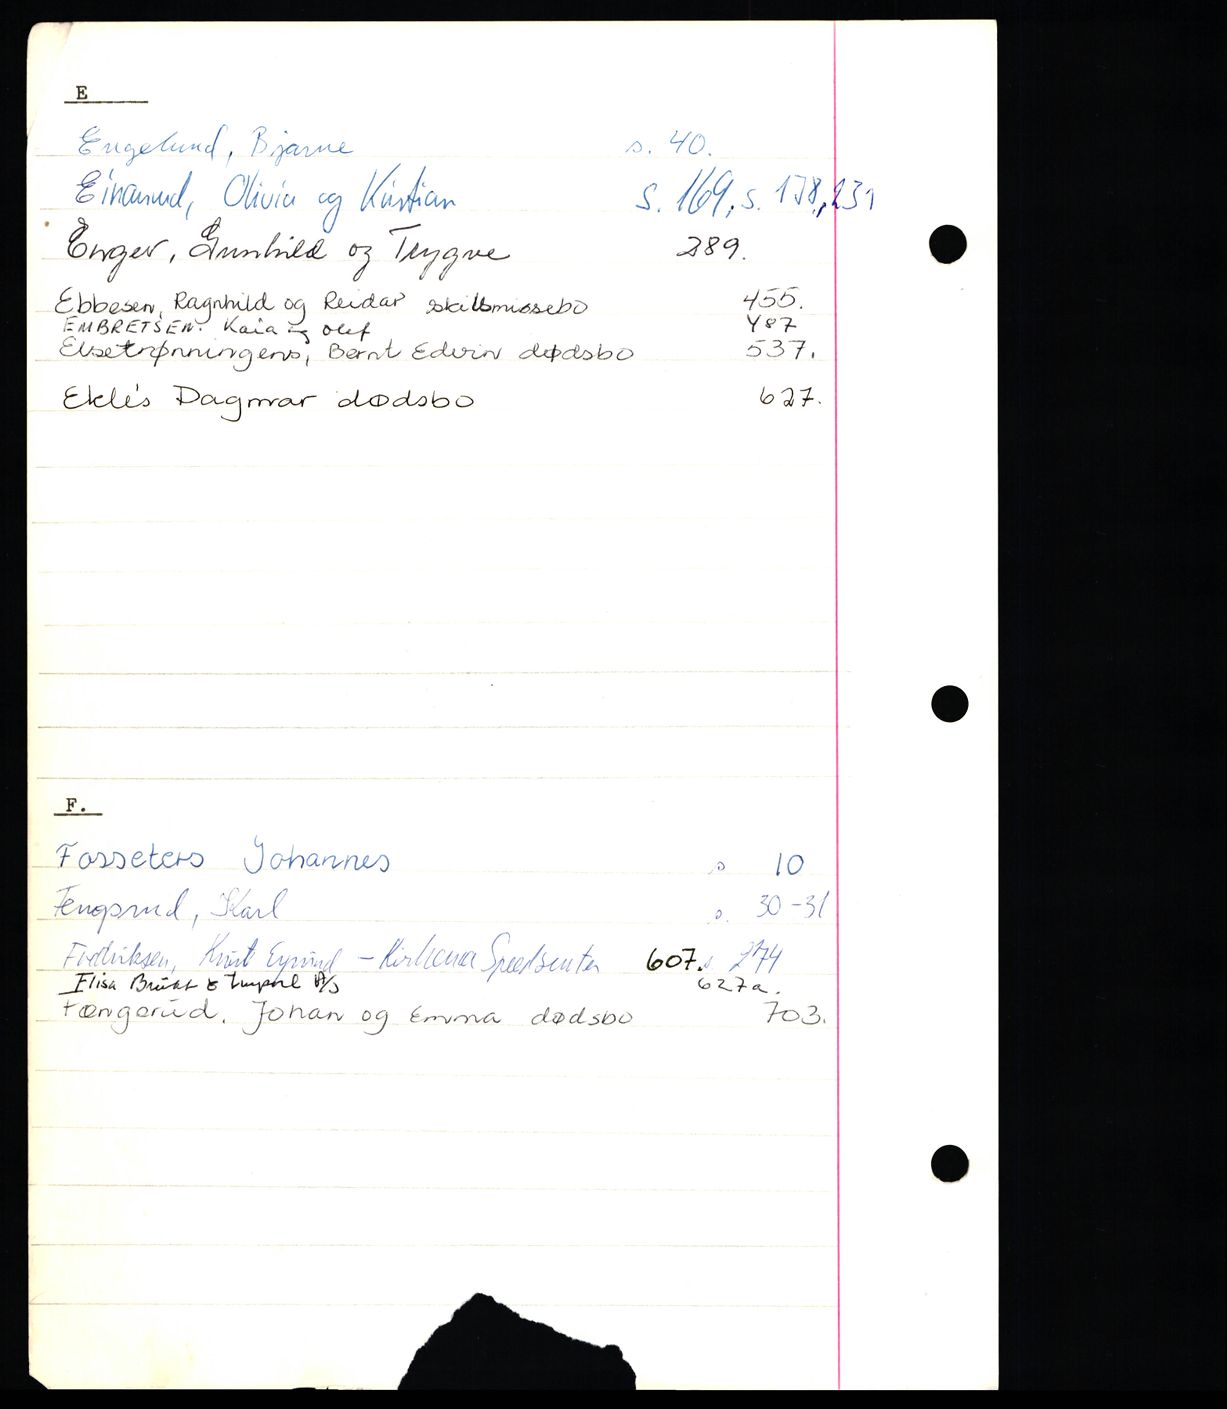 E
Engelund, Bjarne s. 40.
Einarud, Olivia og Kristian s. 169, s. 178, 231
Enger, Gunhild og Trygve 289.
Ebbesen, Ragnhild og Reidar skilsmissebo 455.
EMBRETSEN. Kaia og Olef 487
Elsetrønningens, Bernt Edvin dødsbo 537.
Eklés Dagmar dødsbo 627.
F.
Fosseters Johannes s 10
Fengsrud, Karl s. 30-31
Fredriksen, Knut Eyvind - 607. s 274
Elisa Brukt & Import A/S 627a.
Fængsrud. Johan og Emma dødsbo 703.